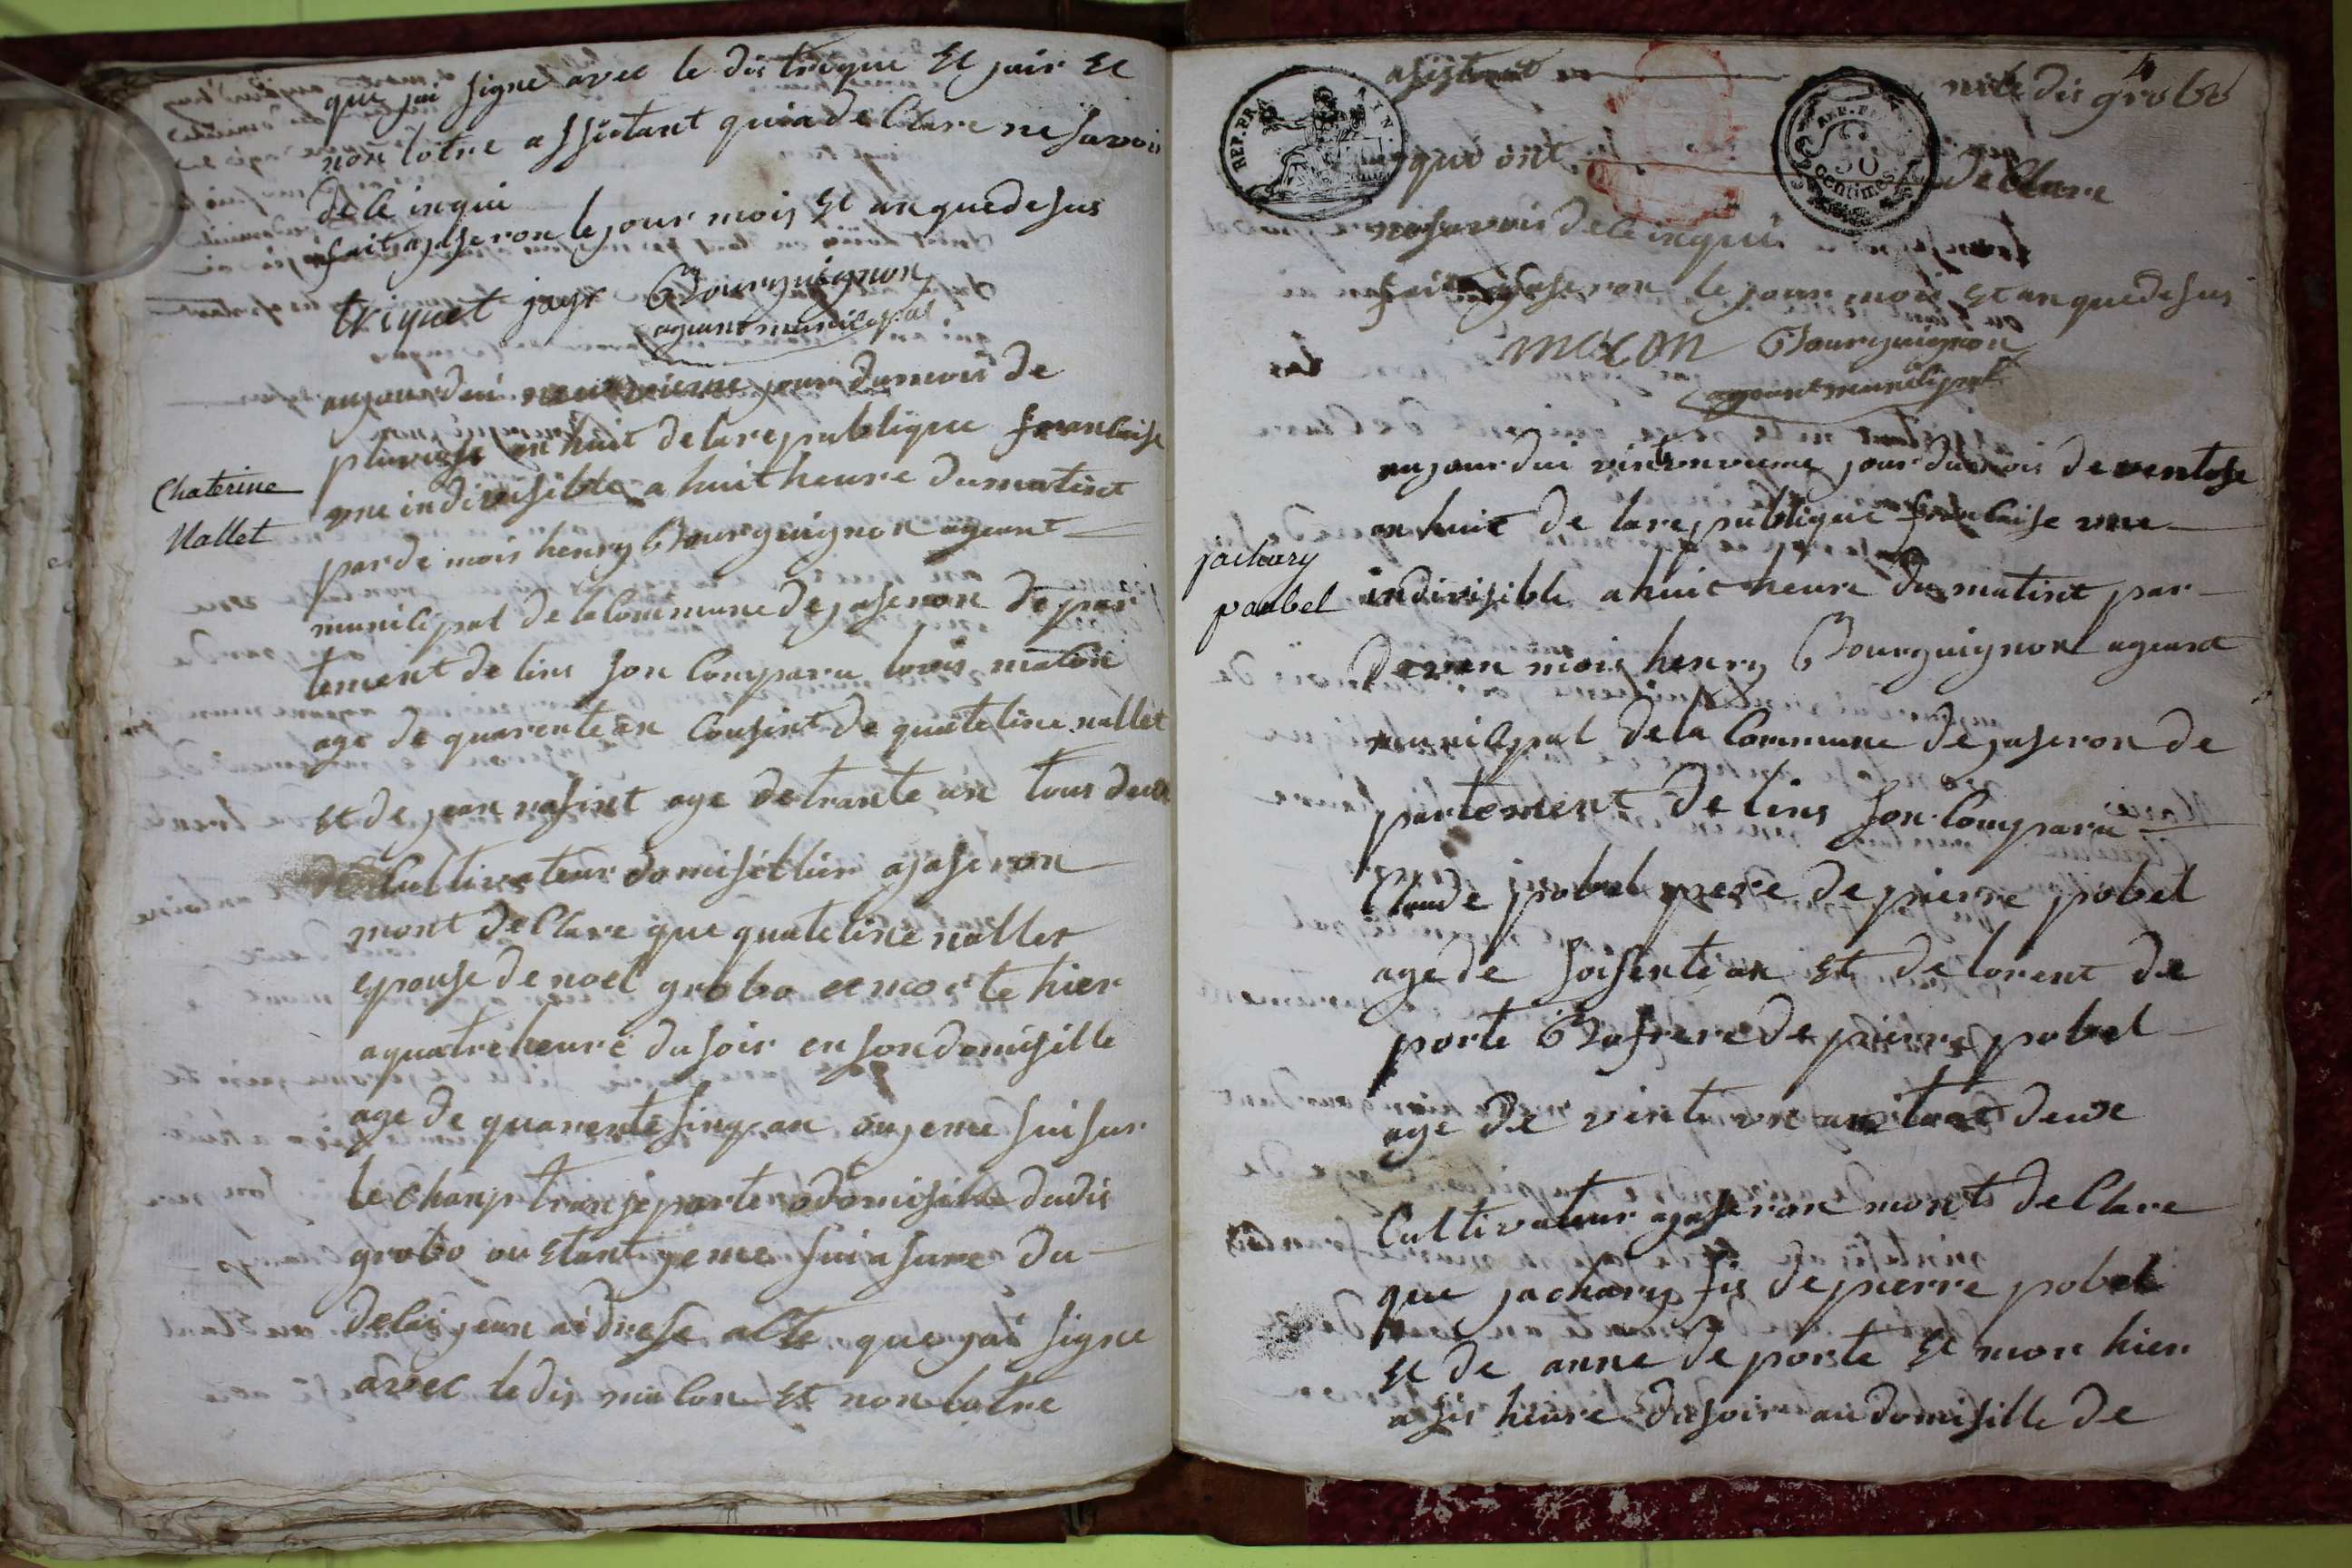 que jai signe avec le dis trique et jair et
non lotre assistant quia de Clare ne savoir
de le inqui
fait ajaseron le jour mois et an que desus
triquet jayr Bourguignon
ageant municipal
aujourdui neuvieme jour du mois de
pluviose an huit de la republique francaise
une indivisible a huit heure du matint
Chaterine
Nallet
par de mois henry Bourguignon ageant
municipal de la Commune de jaseron depar
tement de lins son Comparu louis malon
age de quarente an Cousint de quateline nallet
et de jean rasint age de trante an tous deux
Cultivateur domisillier ajaseron
mont de Clare que quateline nallet
epouse de noel grobo et morte hier
a quatre heure du soir en son domisille
age de quarente sinq an ou je me sui sur
le chanp transeporte o domisille du dis
grobo ou etant je me sui asure du
delai jean ai drese acte que jai signe
avec le dis malon et non lotre
4
asistant
ni le dis grobo
REP. FRA
TIN.
REP. FRA
50
centimes
qui ont
de Clare
ne savoir de le inqui
fait ajaseron le jour mois et an que desus
malon Bourguignon
ageant municipal
aujourdui vint unvieme jour du mois de ventose
an huit de la republique francaise une
jachary
paubel
indivisible a huit heure du matint par
devan mois henry Bourguignon ageant
municipal de la Commune de jaseron de
partement de lins son Comparu
Claude pobel pere de pierre pobel
age de soisente an et de lorent de
porte Bofrere de pierre pobel
age de vinte un an tous deux
Cultivateur ajaseron mont de Clare
que jachary fis de pierre pobel
et de anne de porte et mor hier
a sis heure du soir au domisille de